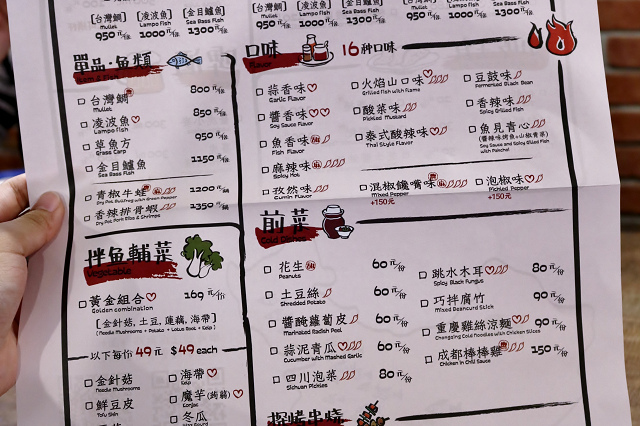 [台灣鯛] [凌波魚] [金目鱸魚]
Mullet Lampo Fish Sea Bass Fish
950元 1000元 1300元
950元 1000元 1300元
單品·魚類
台灣鯛 800元
Mullet
凌波魚 850元
Lampo Fish
草魚方 950元
Grass Carp
金目鱸魚 1150元
Sea Bass Fish
青椒牛蛙 1200元/鍋
Dry Pot Bullfrog with Green Pepper
香辣排骨蝦 1350元/鍋
Dry Pot Pork Ribs & Shrimps
拌魚輔菜
Vegetable
黃金組合 169元/份
Golden combination
[金針菇, 土豆, 蓮藕, 海帶]
(Needle Mushrooms + Potato + Lotus Root + Kelp)
以下每份49元 $49 each
金針菇
Needle Mushrooms
鮮豆皮
Tofu Skin
海帶
Kelp
魔芋(蒟蒻)
Konjac
冬瓜
口味 16種口味
Flavor
蒜香味
Garlic Flavor
醬香味
Soy Sauce Flavor
魚香味
Fish Flavor
麻辣味
Spicy Hot
孜然味
Cumin Flavor
火焰山口味
Grilled Fish with Flame
酸菜味
Pickled Mustard
泰式酸辣味
Thai Style Flavor
混椒饞嘴味
Mixed Pepper
+150元
豆鼓味
Fermented Black Bean
香辣味
Spicy Grilled Fish
魚見青心
(醬辣味烤魚+山椒青菜)
Soy Sauce and Spicy Grilled Fish
with Pakchoi
泡椒味
Pickled Pepper
+150元
前菜
Cold Dishes
花生 60元/份
Peanuts
土豆絲 60元/份
Shredded Potato
醬醃蘿蔔皮 60元/份
Marinated Radish Peel
蒜泥青瓜 60元/份
Cucumber with Mashed Garlic
四川泡菜 80元/份
Sichuan Pickles
跳水木耳 80元/份
Spicy Black Fungus
巧拌腐竹 90元/份
Mixed Beancurd Stick
重慶雞絲涼麵 90元/份
Chongqing Cold Noodles with Chicken Slices
成都棒棒雞 150元/份
Chicken in Chili Sauce